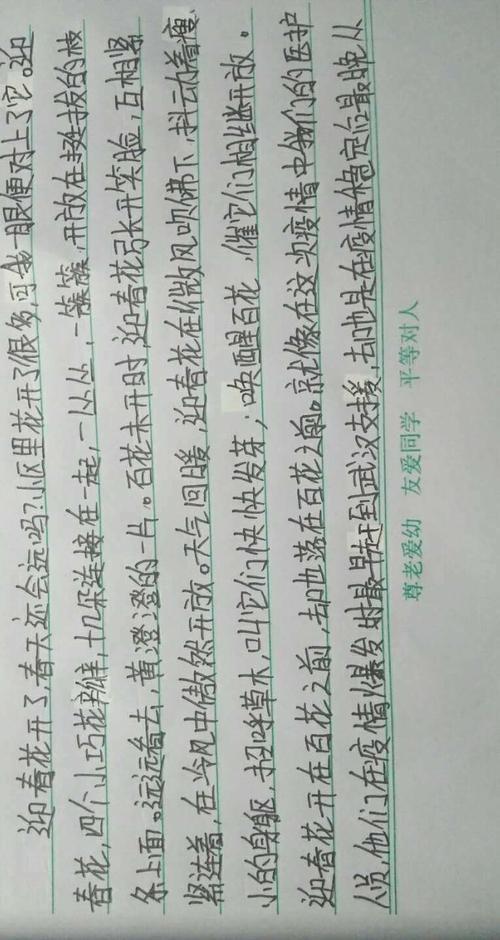 迎春花开了,春天还会远吗?小区里花开了很多,可我一眼便对上了它。迎
春花,四个小巧花瓣,十几朵连接在一起,一丛丛,一簇簇,开放在挺拔的枝
条上面。远远看去,黄澄澄的一片。百花未开时,迎春花引长开笑脸,互相紧
紧连着,在冷风中傲然开放。天气回暖,迎春花在微风吹佛下,抖动着瘦
小的身躯,招呼草木,叫它们快快发芽;唤醒百花,催它们相继开放。
迎春花开在百花之前,却也落在百花之前。就像在这次疫情中我们的医护
人员,他们在疫情爆发时最早赶到武汉支援,却也是在疫情稳定后最晚从
尊老爱幼 友爱同学 平等对人